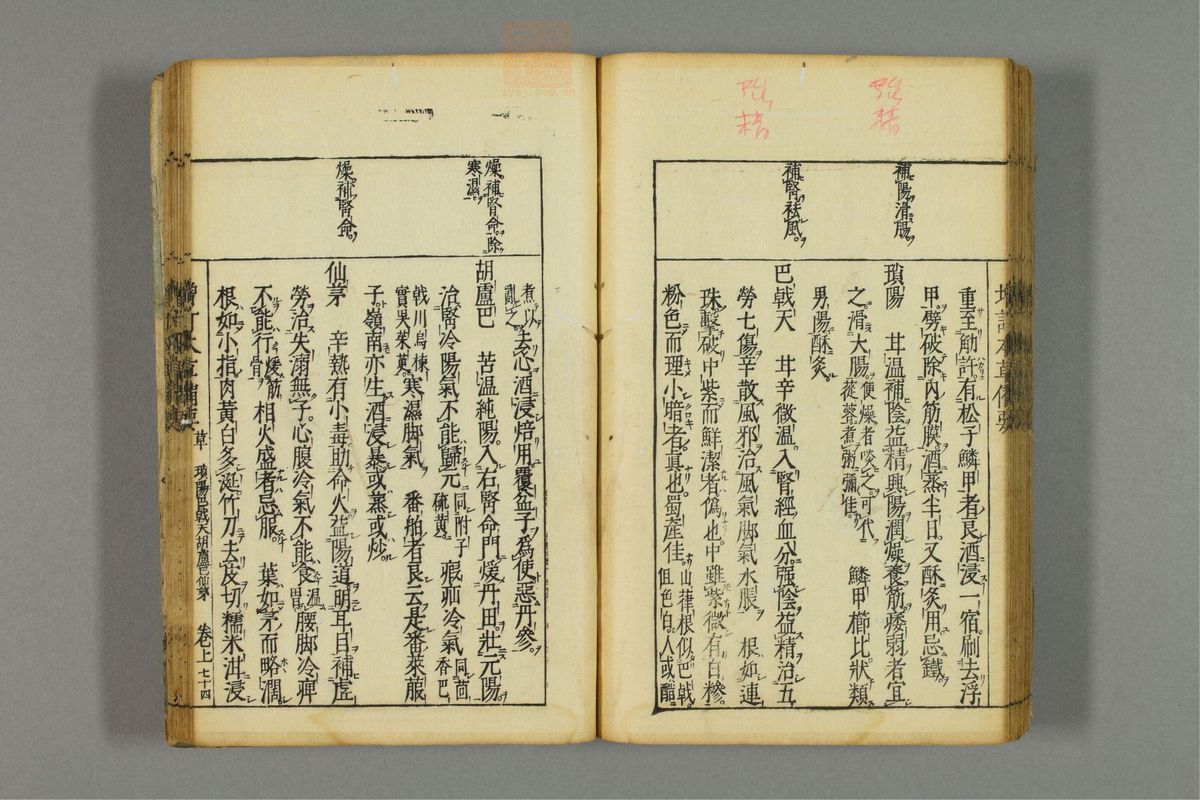 重至觔許有松子鱗甲者良酒浸一宿刷去浮
甲劈破除內筋膜酒蒸半日又酥炙用忌鐵
補陽滑腸
瑣陽 甘溫補陰益精興陽潤燥養筋痿弱者宜
之滑大腸便燥者啖之可代蓯蓉煮粥彌佳 鱗甲櫛比狀類
男陽酥炙
補腎祛風
巴戟天 甘辛微溫入腎經血分强陰益精治五
勞七傷辛散風邪治風氣脚氣水脹 根如連
珠擊破中紫而鮮潔者偽也中雖紫微有白糝
粉色而理小暗者真也蜀產佳山葎根似巴戟但色白人或醋
煮以亂之去心酒浸焙用覆盆子為使惡丹參
燥補腎命除寒濕
胡盧巴 苦溫純陽入右腎命門煖丹田壯元陽
治腎冷陽氣不能歸元同附子硫黃瘕疝冷氣同茴香巴
戟川烏楝實吳茱萸寒濕脚氣 番舶者良云是番萊菔
子嶺南亦生酒浸暴或蒸或炒
燥補腎命
仙茅 辛熱有小毒助命火益陽道明耳目補虛
勞治失溺無子心腹冷氣不能食溫胃腰脚冷痺
不能行煖筋骨相火盛者忌服 葉如茅而略濶
根如小指肉黃白多涎竹刀去皮切糯米泔浸
草 瑣陽巴戟天胡盧巴仙茅 卷上 七十四